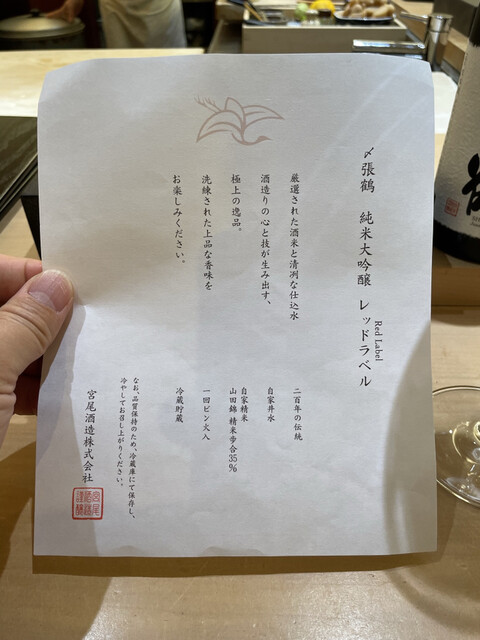 〆張鶴 純米大吟醸 レッドラベル
Red Label
厳選された酒米と清冽な仕込水
酒造りの心と技が生み出す、
極上の逸品。
洗練された上品な香味を
お楽しみください。
二百年の伝統
自家井水
自家精米
山田錦 精米歩合35%
一回ビン火入
冷蔵貯蔵
なお、品質保持のため、冷蔵庫にて保存し、
冷やしてお召し上がりください。
宮尾酒造株式会社